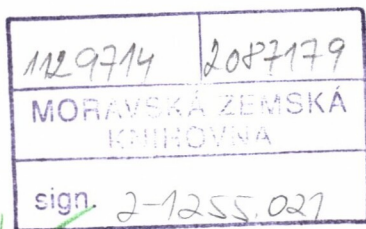 1129714 2087179
MORAVSKÁ ZEMSKÁ
KNIHOVNA
sign. 2-1255.021